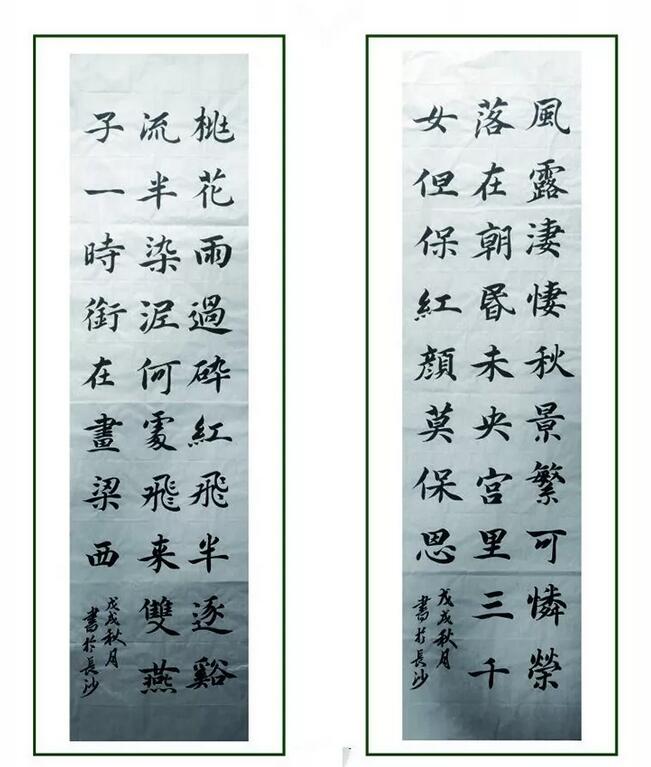 風露淒悽秋景繁可憐榮
落在朝昬未央宫里三千
女但保紅顏莫保恩
戊戌秋月
書於長沙
桃花雨過碎紅飛半逐谿
流半染泥何處飛来雙燕
子一時銜在畫梁西
戊戌秋月
書於長沙